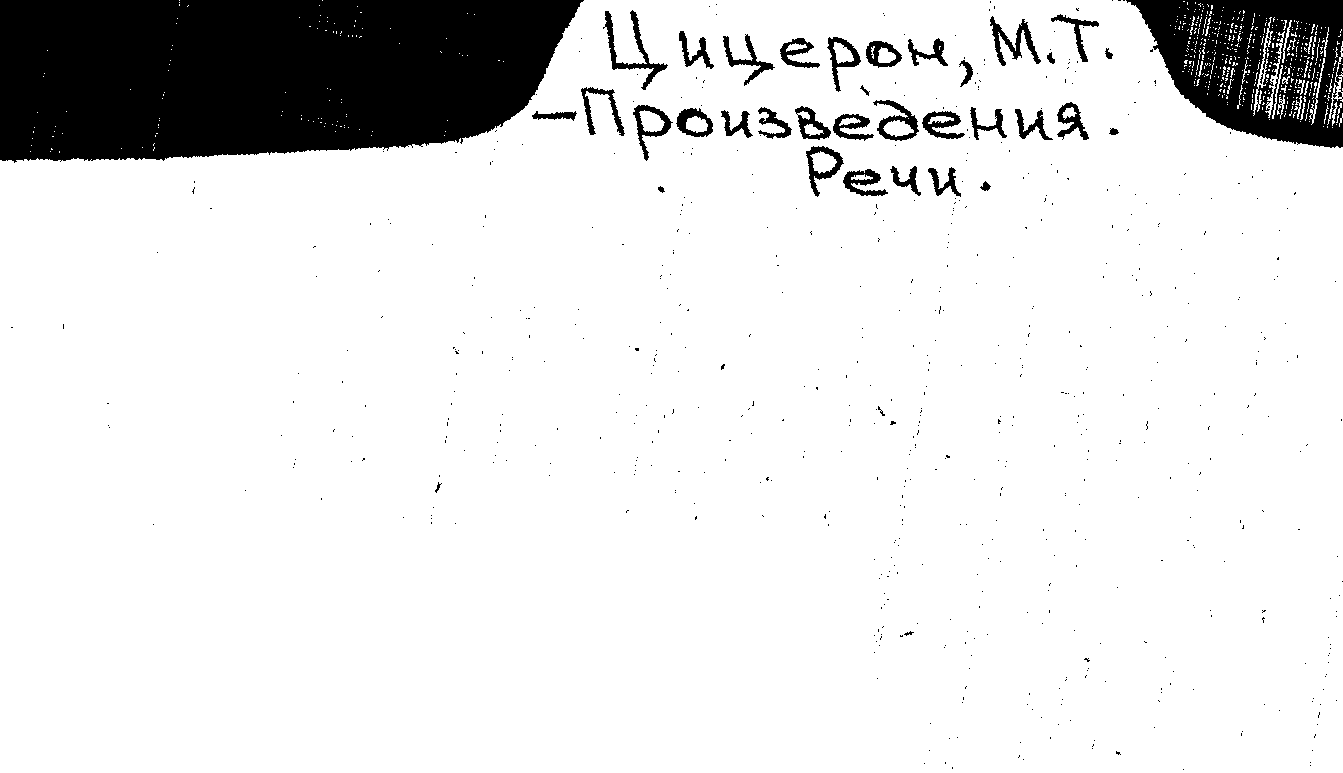 Цицерон, М.Т.
-Произведения.
Речи.